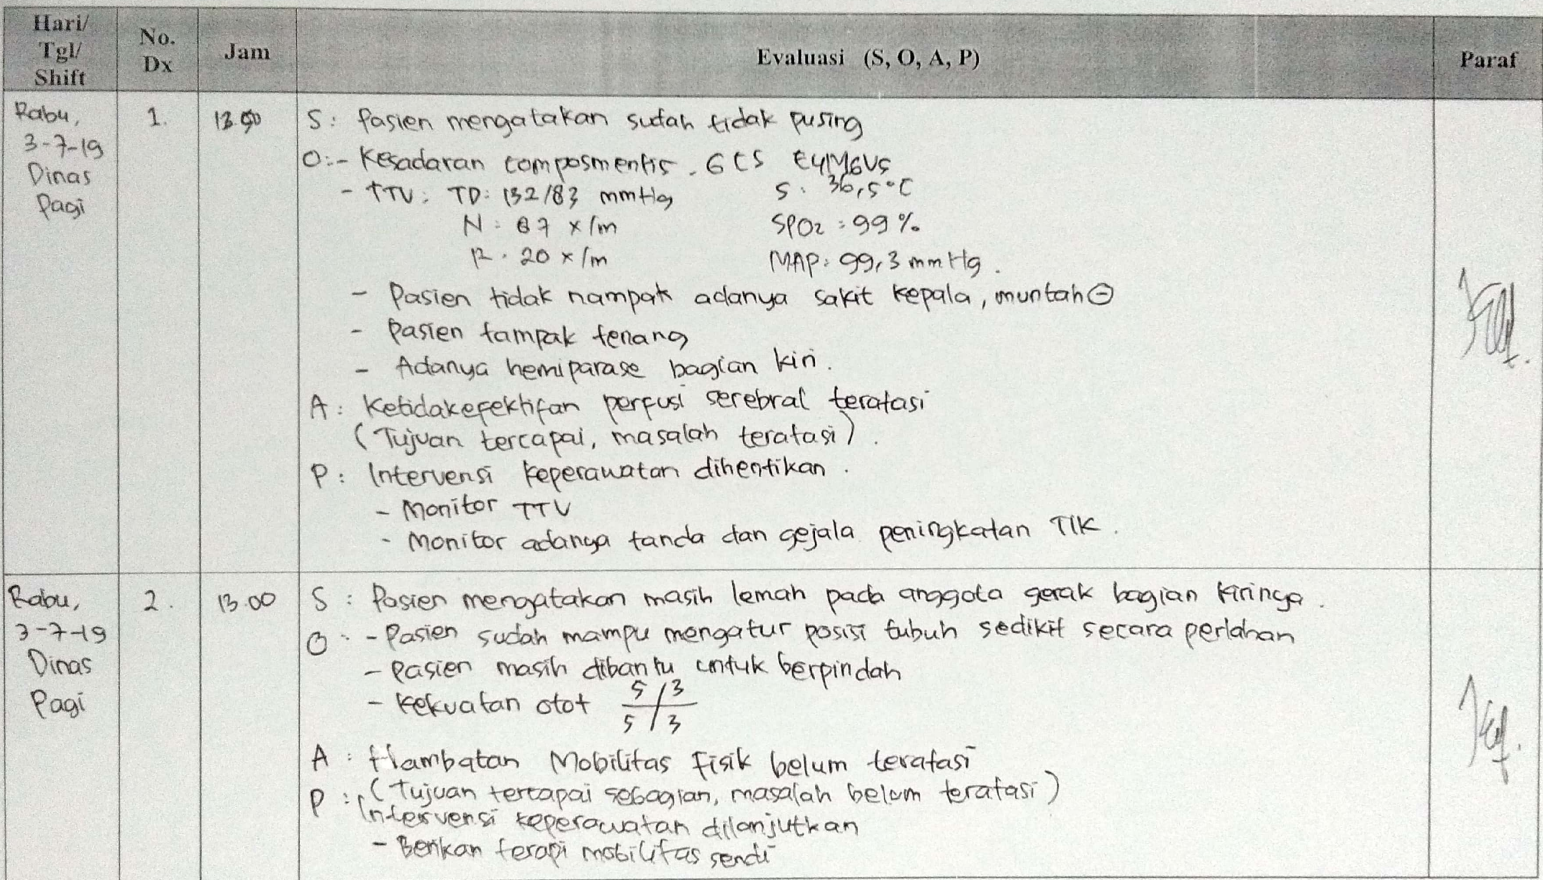 Hari/
Tgl/
Shift
No.
Dx
Jam
Evaluasi (S, O, A, P)
Paraf
Rabu,
3-7-19
Dinas
Pagi
1.
S : Pasien mengatakan sudah tidak pusing
O : - Kesadaran composmentis. GCS E4M6V5
- TTV : TD : 132/83 mmHg S : 36,5°C
N : x/m SPO2 : 99 %
R : 20 x/m MAP : 99,3 mmHg.
- Pasien tidak nampak adanya sakit kepala, muntah ⊖
- Pasien tampak tenang
- Adanya hemiparase bagian kiri.
A : Ketidakefektifan perfusi serebral teratasi
(Tujuan tercapai, masalah teratasi).
P : Intervensi keperawatan dihentikan.
- Monitor TTV
- Monitor adanya tanda dan gejala peningkatan TIK.
Rabu,
3-7-19
Dinas
Pagi
2.
13.00
S : Pasien mengatakan masih lemah pada anggota gerak bagian kirinya.
O : - Pasien sudah mampu mengatur posisi tubuh sedikit secara perlahan
- Pasien masih dibantu untuk berpindah
- Kekuatan otot 5 / 3
5 / 3
A : Hambatan Mobilitas Fisik belum teratasi
(Tujuan tercapai sebagian, masalah belum teratasi)
P : Intervensi keperawatan dilanjutkan
- Berikan terapi mobilitas sendi